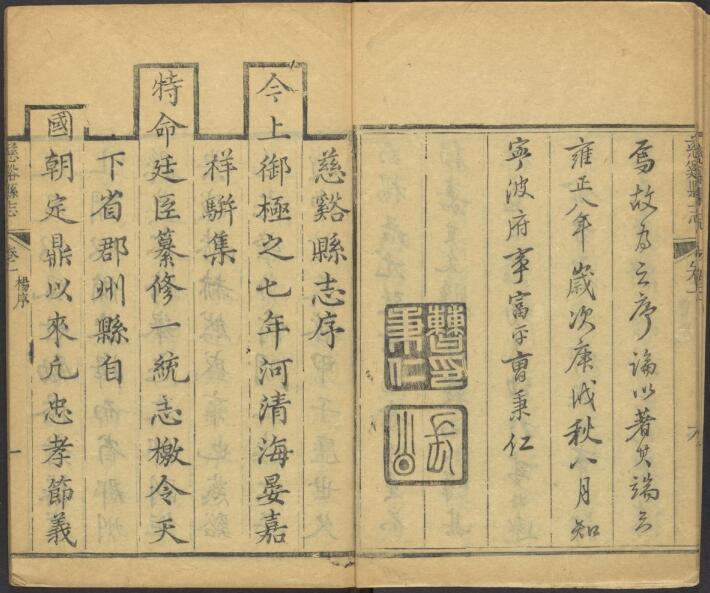 焉故为之序論以著其端云
雍正八年歲次庚戌秋八月知
寧波府事富平曹秉仁
曹秉仁印
慈谿縣志序
今上御極之七年河清海晏嘉
祥駢集
特命廷臣纂修一統志檄令天
下省郡州縣自
國朝定鼎以來凡忠孝節義
慈谿縣志
卷一
楊序
一